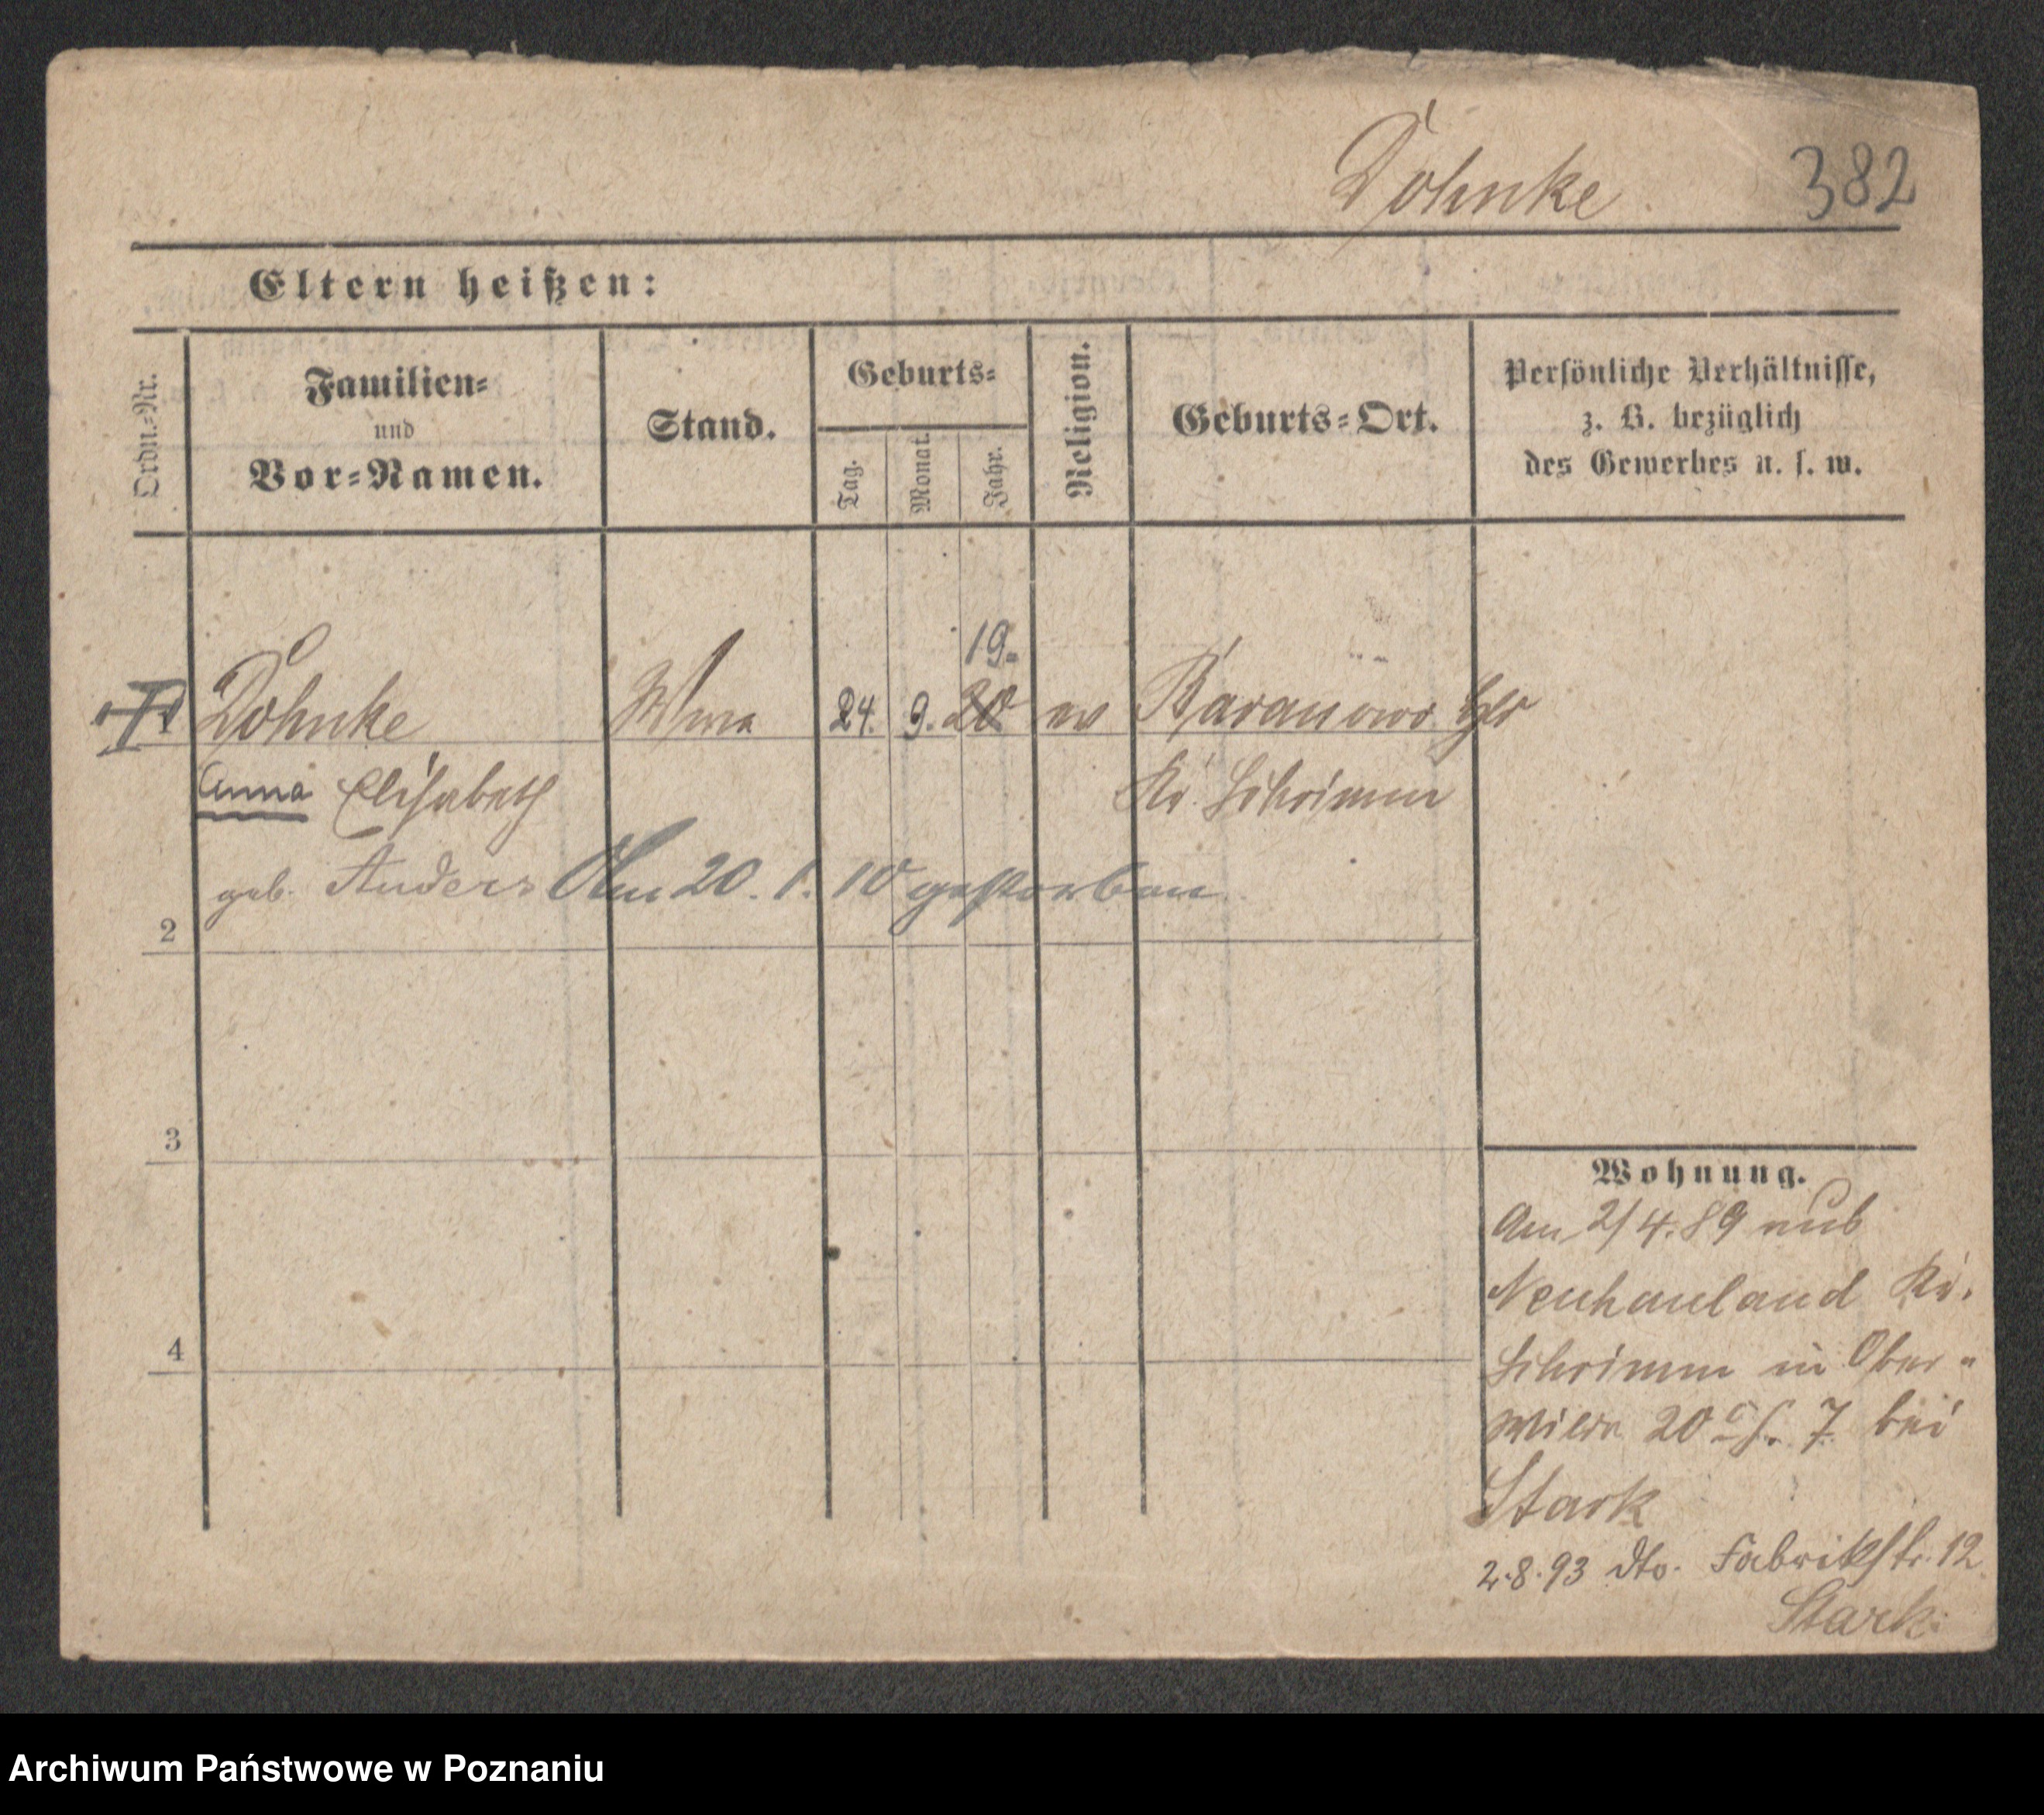 Dohnke 382
Eltern heißen:
Ordn.-Nr.
Familien-
und
Vor-Namen.
Stand.
Geburts-
Tag.
Monat.
Jahr.
Religion.
Geburts-Ort.
Persönliche Verhältnisse,
z. B. bezüglich
des Gewerbes u. s. w.
19.
Dohnke Wwe 24. 9. 20 ev Baranowo
Anna Elisabeth Kr. Schrimm
geb. Anders Am 20. 1. 10 gestorben
2
3
4
Wohnung.
Am 2/4. 89 aus
Neuhauland Kr.
Schrimm in Ober-
wilda 20 7 bei
Stark
2.8.93 dto. Fabrikstr. 12
Stark.
Archiwum Państwowe w Poznaniu